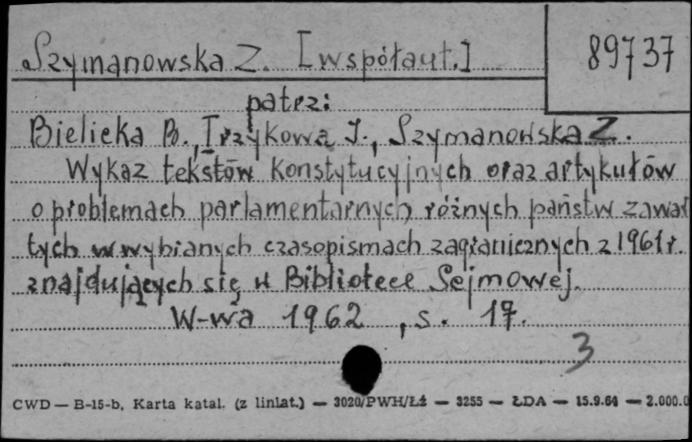 Szymanowska Z. [współaut.]
89737
patrz:
Bielicka B., Irzykowa I., Szymanowska Z.
Wykaz tekstów konstytucyjnych oraz artykułów
o problemach parlamentarnych różnych państw zawar
tych w wybranych czasopismach zagranicznych z 1961 r.
znajdujących się w Bibliotece Sejmowej.
W-wa 1962, s. 17.
3
CWD — B-15-b, Karta katal. (z liniat.) — 3020/PWH/Łż — 3255 — ŁDA — 15.9.61 — 2.000.0